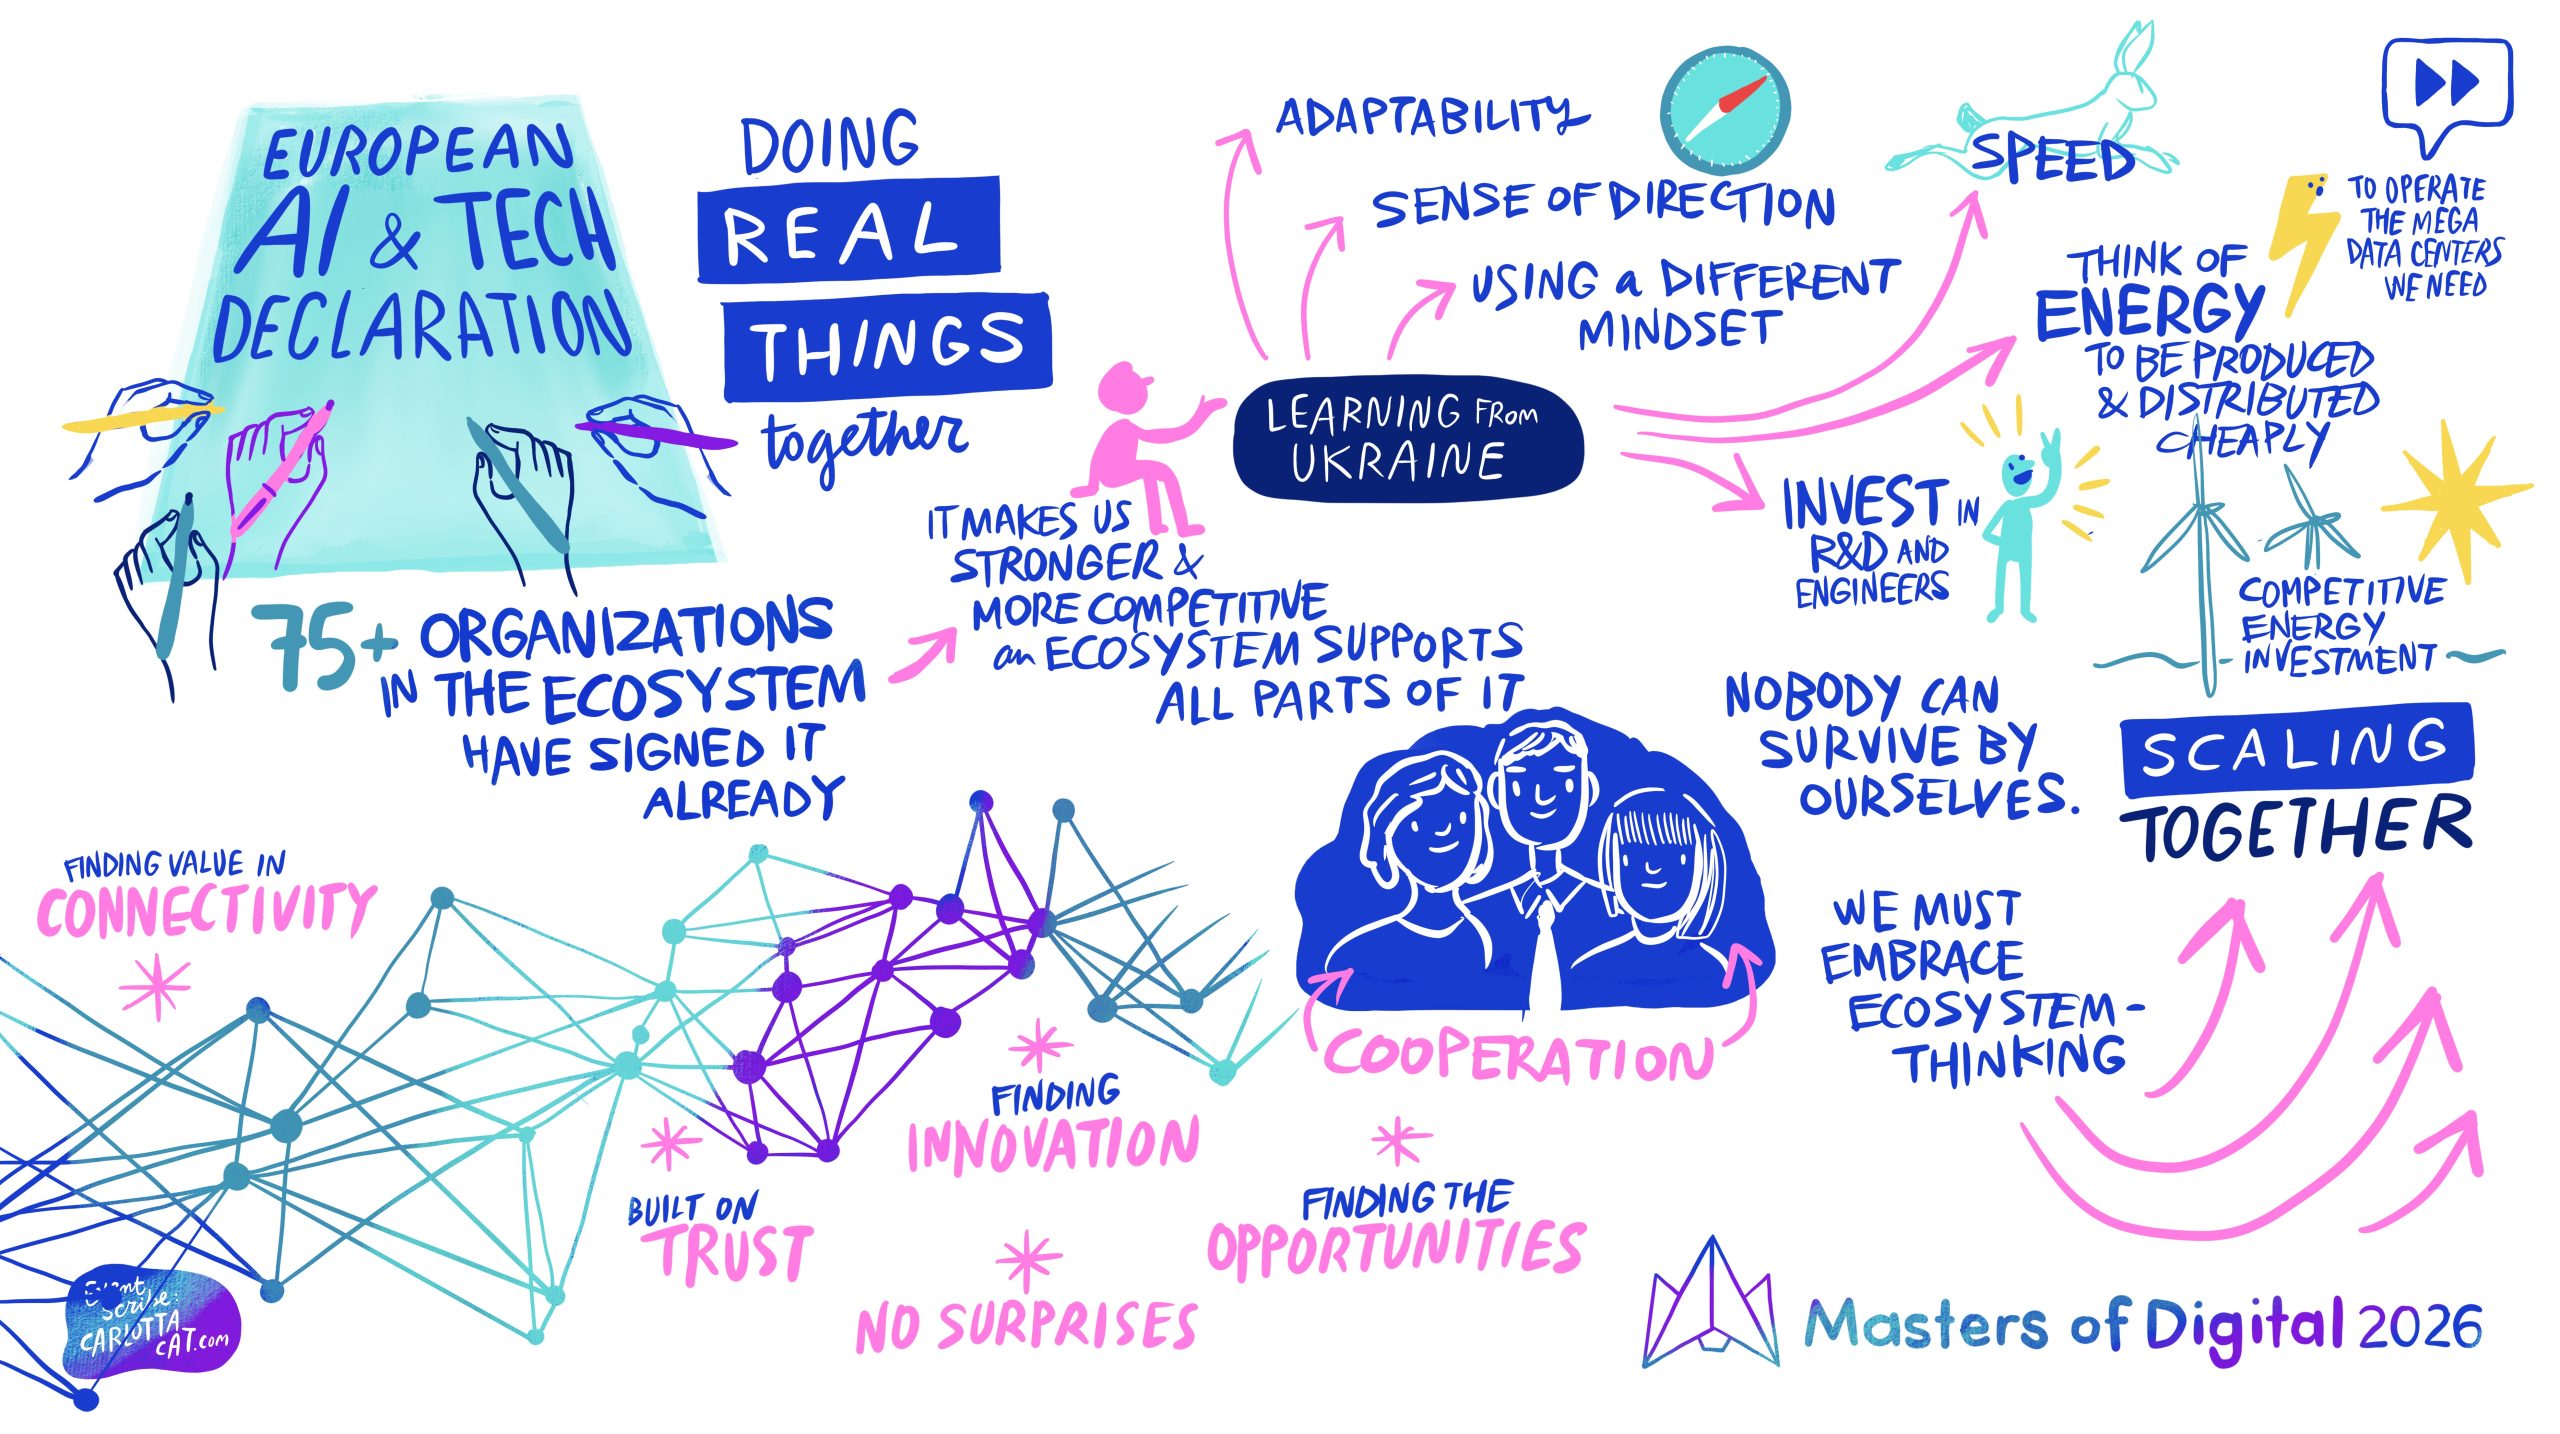 EUROPEAN
AI & TECH
DECLARATION
DOING
REAL
THINGS
together
75+ ORGANIZATIONS
IN THE ECOSYSTEM
HAVE SIGNED IT
ALREADY
IT MAKES US
STRONGER &
MORE COMPETITIVE
an ECOSYSTEM SUPPORTS
ALL PARTS OF IT
LEARNING FROM
UKRAINE
ADAPTABILITY
SENSE OF DIRECTION
USING a DIFFERENT
MINDSET
SPEED
THINK OF
ENERGY
TO BE PRODUCED
& DISTRIBUTED
CHEAPLY
TO OPERATE
THE MEGA
DATA CENTERS
WE NEED
INVEST IN
R&D AND
ENGINEERS
COMPETITIVE
ENERGY
INVESTMENT
NOBODY CAN
SURVIVE BY
OURSELVES.
SCALING
TOGETHER
WE MUST
EMBRACE
ECOSYSTEM-
THINKING
COOPERATION
FINDING VALUE IN
CONNECTIVITY
BUILT ON
TRUST
FINDING
INNOVATION
NO SURPRISES
FINDING THE
OPPORTUNITIES
Event
Scribe:
CARLOTTA
CAT.com
Masters of Digital 2026